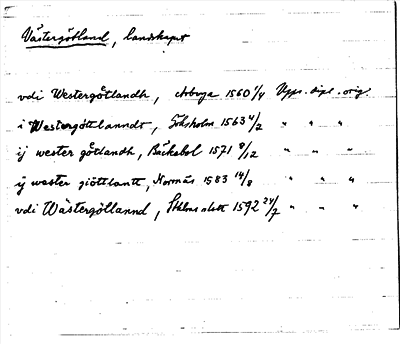 Västergötland, landskapet
vdi Westergötlandh, Arboga 1560 1/4 Upps. dipl. orig.
i Westergöttlanndt, Sthlm 1563 4/2 " " "
ij wester götlandh, Bäckebol 1571 8/12 " " "
ij wester giöttlantt, Horns 1583 14/8 " " "
vdi Wästergötlannd, Sthlms slott 1592 24/7 " " "